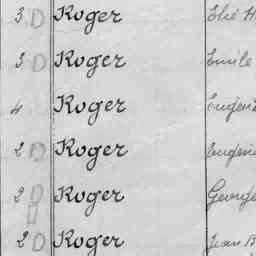 3 D Roger Elie H
3 D Roger Emile
4 Roger Eugène
2 D Roger Eugène
2 D Roger George
2 D Roger Jean B